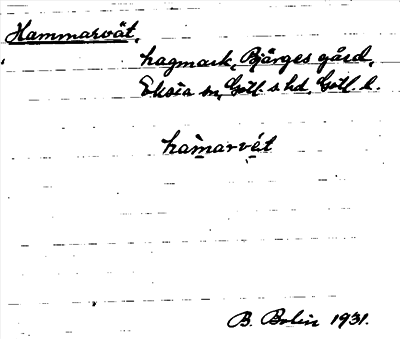 Hammarvät,
hagmark, Bjärges gård,
Eksta sn, Gotl. s. hd, Gotl. l.
hamarvét
B. Bolin 1931.